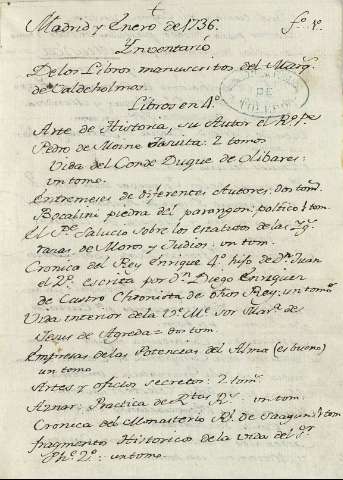 Madrid y Enero de 1736. fo. 1o.
Inventario
De los Libros manuscritos del Marqs.
de Valdeholmar.
Libros en 4o.
DE
Arte de Historia, su Autor el Ro. Pe.
Pedro de Moine Jesuita: 2 tomos
Vida del Conde Duque de Olibares:
un tomo.
Entremeses de diferentes Autores: dos tom.
Bocalini piedra del parangon politico 1 tom.
El Pe. Salucio sobre los estatutos de las
razas de Moros y Judios: un tom.
Cronica del Rey Enrique 4o. hijo de Dn. Juan
el 2o. escrita por Dn. Diego Enriquez
de Castro Chronista de dhos Rey: un tomo
Vida interior de la Ve. Me. Sor Mara. de
Jesus de Agreda = dos tom.
Empresas de las Potencias del Alma (es bueno)
un tomo
Artes y oficios secretos: 2 tom.
Aznar: Practica de Rtas. Rs. un tom.
Cronica del Monasterio Rl. de Saagun: 1 tom
fragmento Historico de la vida del Sr.
Phe. 2o.: un tomo.